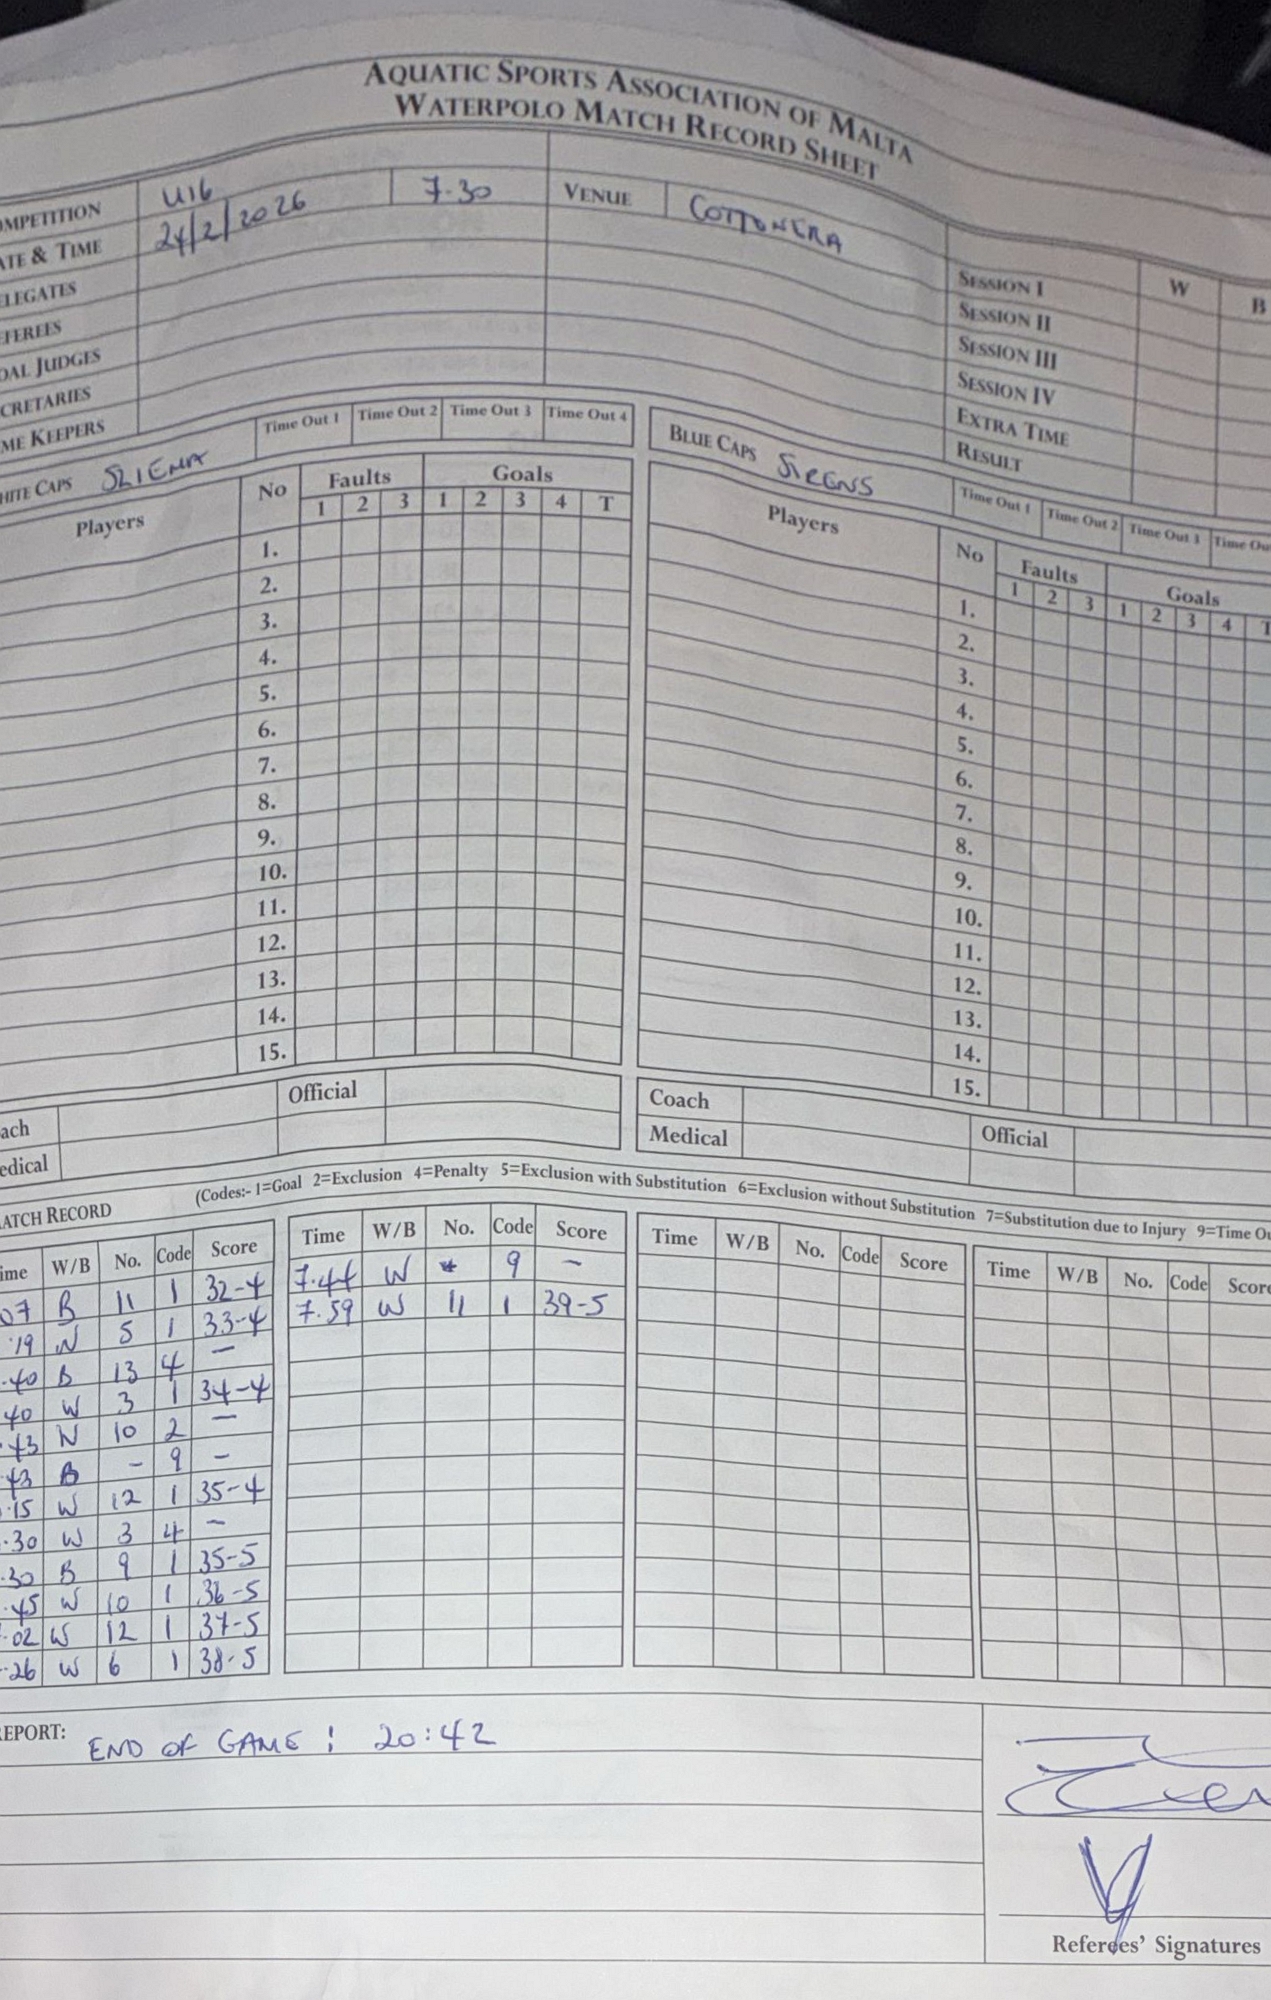 AQUATIC SPORTS ASSOCIATION OF MALTA
WATERPOLO MATCH RECORD SHEET
OMPETITION U16
ATE & TIME 24/2/2026 7.30 VENUE COTTONERA
ELEGATES
FEREES
OAL JUDGES
CRETARIES
ME KEEPERS
W B
SESSION I
SESSION II
SESSION III
SESSION IV
EXTRA TIME
RESULT
HITE CAPS SLIEMA Time Out 1 Time Out 2 Time Out 3 Time Out 4
Players No Faults Goals
1 2 3 1 2 3 4 T
1.
2.
3.
4.
5.
6.
7.
8.
9.
10.
11.
12.
13.
14.
15.
ach Official
edical
BLUE CAPS SIRENS Time Out 1 Time Out 2 Time Out 3 Time Ou
Players No Faults Goals
1 2 3 1 2 3 4 T
1.
2.
3.
4.
5.
6.
7.
8.
9.
10.
11.
12.
13.
14.
15.
Coach Official
Medical
ATCH RECORD (Codes:- 1=Goal 2=Exclusion 4=Penalty 5=Exclusion with Substitution 6=Exclusion without Substitution 7=Substitution due to Injury 9=Time Ou
ime W/B No. Code Score
07 B 11 1 32-4
.19 W 5 1 33-4
.40 B 13 4 –
40 W 3 1 34-4
.43 W 10 2 –
.43 B - 9 –
.15 W 12 1 35-4
.30 W 3 4 –
.30 B 9 1 35-5
.45 W 10 1 36-5
.02 W 12 1 37-5
.26 W 6 1 38-5
Time W/B No. Code Score
7.44 W 9 –
7.59 W 11 1 39-5
Time W/B No. Code Score
Time W/B No. Code Score
EPORT: END OF GAME : 20:42
Referees' Signatures